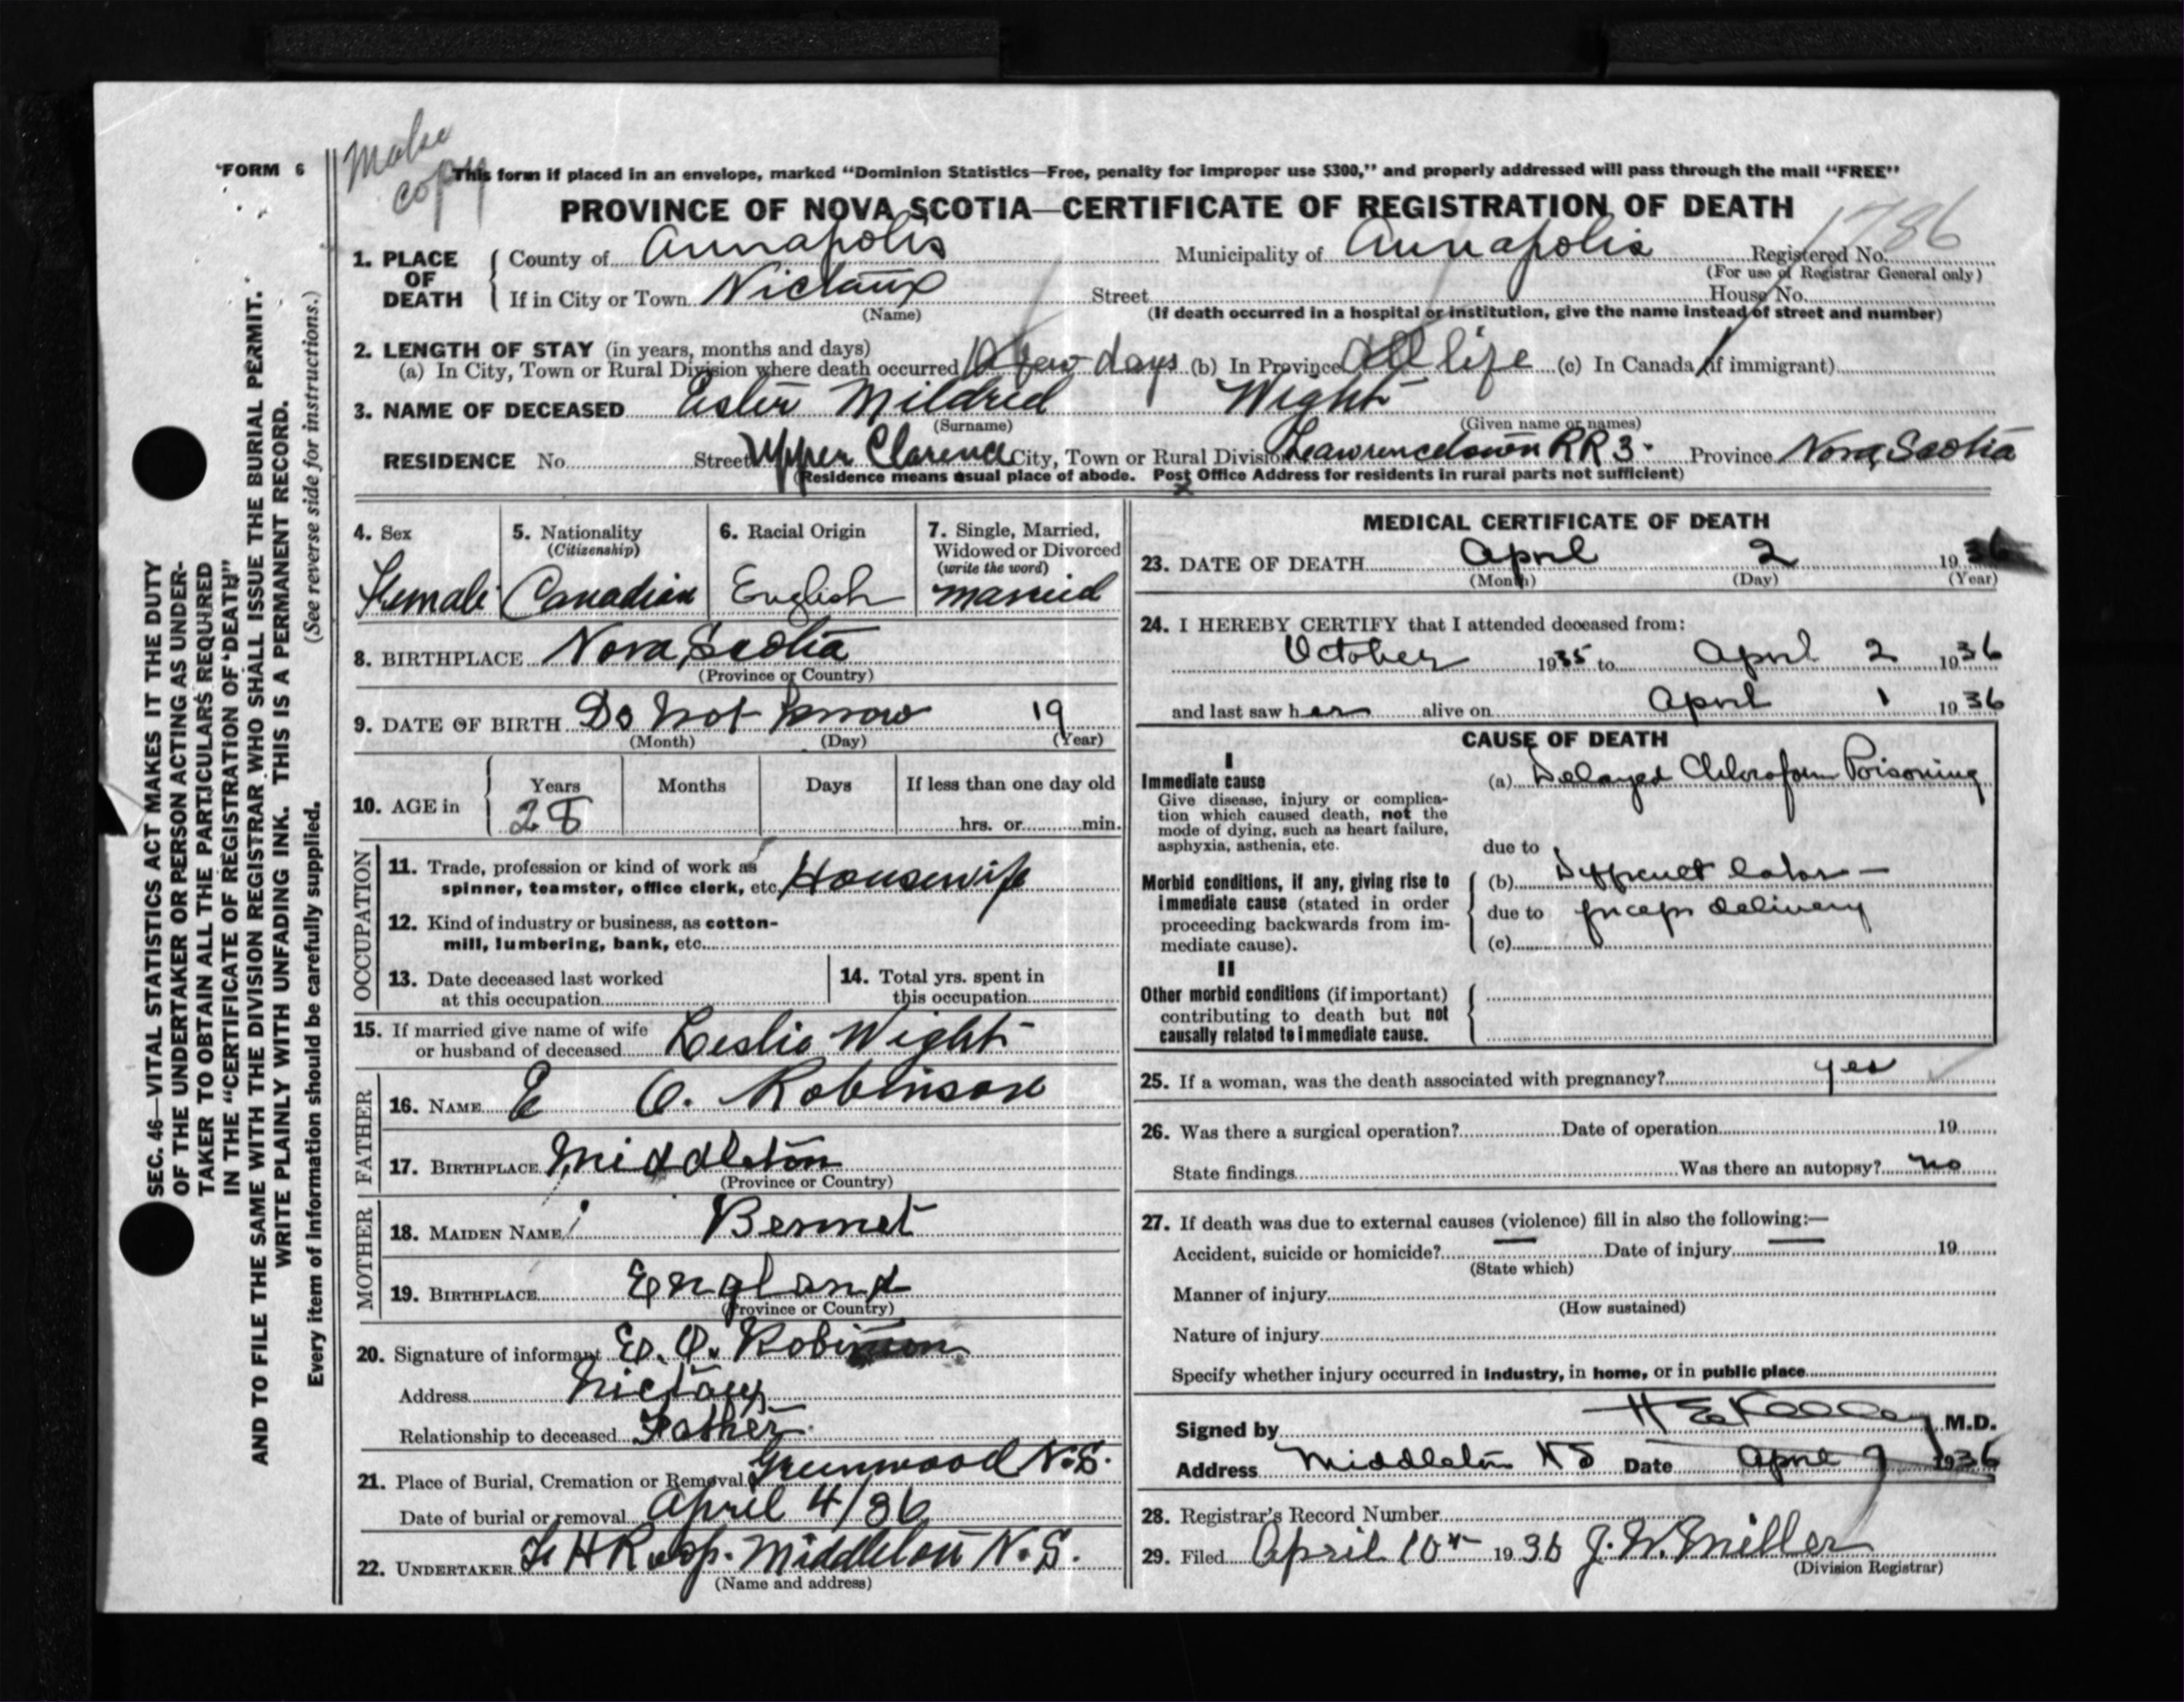 Make
copy
FORM 6
This form if placed in an envelope, marked “Dominion Statistics—Free, penalty for improper use $300,” and properly addressed will pass through the mail “FREE”
PROVINCE OF NOVA SCOTIA—CERTIFICATE OF REGISTRATION OF DEATH
1786
1. PLACE OF DEATH
County of Annapolis Municipality of Annapolis Registered No.
(For use of Registrar General only)
If in City or Town Nictaux Street House No.
(Name) (If death occurred in a hospital or institution, give the name instead of street and number)
2. LENGTH OF STAY (in years, months and days)
(a) In City, Town or Rural Division where death occurred A few days (b) In Province All life (c) In Canada (if immigrant)
3. NAME OF DECEASED Ester Mildred Wight
(Surname) (Given name or names)
RESIDENCE No. Street Upper Clarence City, Town or Rural Division Lawrencetown RR 3. Province Nova Scotia
(Residence means usual place of abode. Post Office Address for residents in rural parts not sufficient)
4. Sex
Female
5. Nationality
(Citizenship)
Canadian
6. Racial Origin
English
7. Single, Married,
Widowed or Divorced
(write the word)
married
8. BIRTHPLACE Nova Scotia
(Province or Country)
9. DATE OF BIRTH Do not know 19
(Month) (Day) (Year)
10. AGE in
Years Months Days If less than one day old
28 hrs. or min.
OCCUPATION
11. Trade, profession or kind of work as
spinner, teamster, office clerk, etc. Housewife
12. Kind of industry or business, as cotton-
mill, lumbering, bank, etc.
13. Date deceased last worked
at this occupation
14. Total yrs. spent in
this occupation
15. If married give name of wife
or husband of deceased Leslie Wight
FATHER
16. NAME E O. Robinson
17. BIRTHPLACE Middleton
(Province or Country)
MOTHER
18. MAIDEN NAME
19. BIRTHPLACE England
(Province or Country)
20. Signature of informant E. O. Robinson
Address Nictaux
Relationship to deceased Father
21. Place of Burial, Cremation or Removal Greenwood N.S.
Date of burial or removal April 4/36
22. UNDERTAKER Middleton N.S.
(Name and address)
MEDICAL CERTIFICATE OF DEATH
23. DATE OF DEATH April 2 1936
(Month) (Day) (Year)
24. I HEREBY CERTIFY that I attended deceased from:
October 1935 to April 2 1936
and last saw her alive on April 1 1936
CAUSE OF DEATH
I
Immediate cause
Give disease, injury or complica-
tion which caused death, not the
mode of dying, such as heart failure,
asphyxia, asthenia, etc.
(a) Delayed Chloroform Poisoning
due to
Morbid conditions, if any, giving rise to
immediate cause (stated in order
proceeding backwards from im-
mediate cause).
(b) Difficult labor —
due to forceps delivery
(c)
II
Other morbid conditions (if important)
contributing to death but not
causally related to immediate cause.
25. If a woman, was the death associated with pregnancy? yes
26. Was there a surgical operation? Date of operation 19
State findings Was there an autopsy? no
27. If death was due to external causes (violence) fill in also the following:—
Accident, suicide or homicide? — Date of injury — 19
(State which)
Manner of injury
(How sustained)
Nature of injury
Specify whether injury occurred in industry, in home, or in public place
Signed by H E Kelley M.D.
Address Middleton NS Date April 9 1936
28. Registrar's Record Number
29. Filed April 10 1936 J. W. Miller
(Division Registrar)
SEC. 46—VITAL STATISTICS ACT MAKES IT THE DUTY
OF THE UNDERTAKER OR PERSON ACTING AS UNDER-
TAKER TO OBTAIN ALL THE PARTICULARS REQUIRED
IN THE “CERTIFICATE OF REGISTRATION OF DEATH”
AND TO FILE THE SAME WITH THE DIVISION REGISTRAR WHO SHALL ISSUE THE BURIAL PERMIT.
WRITE PLAINLY WITH UNFADING INK. THIS IS A PERMANENT RECORD.
Every item of information should be carefully supplied. (See reverse side for instructions.)